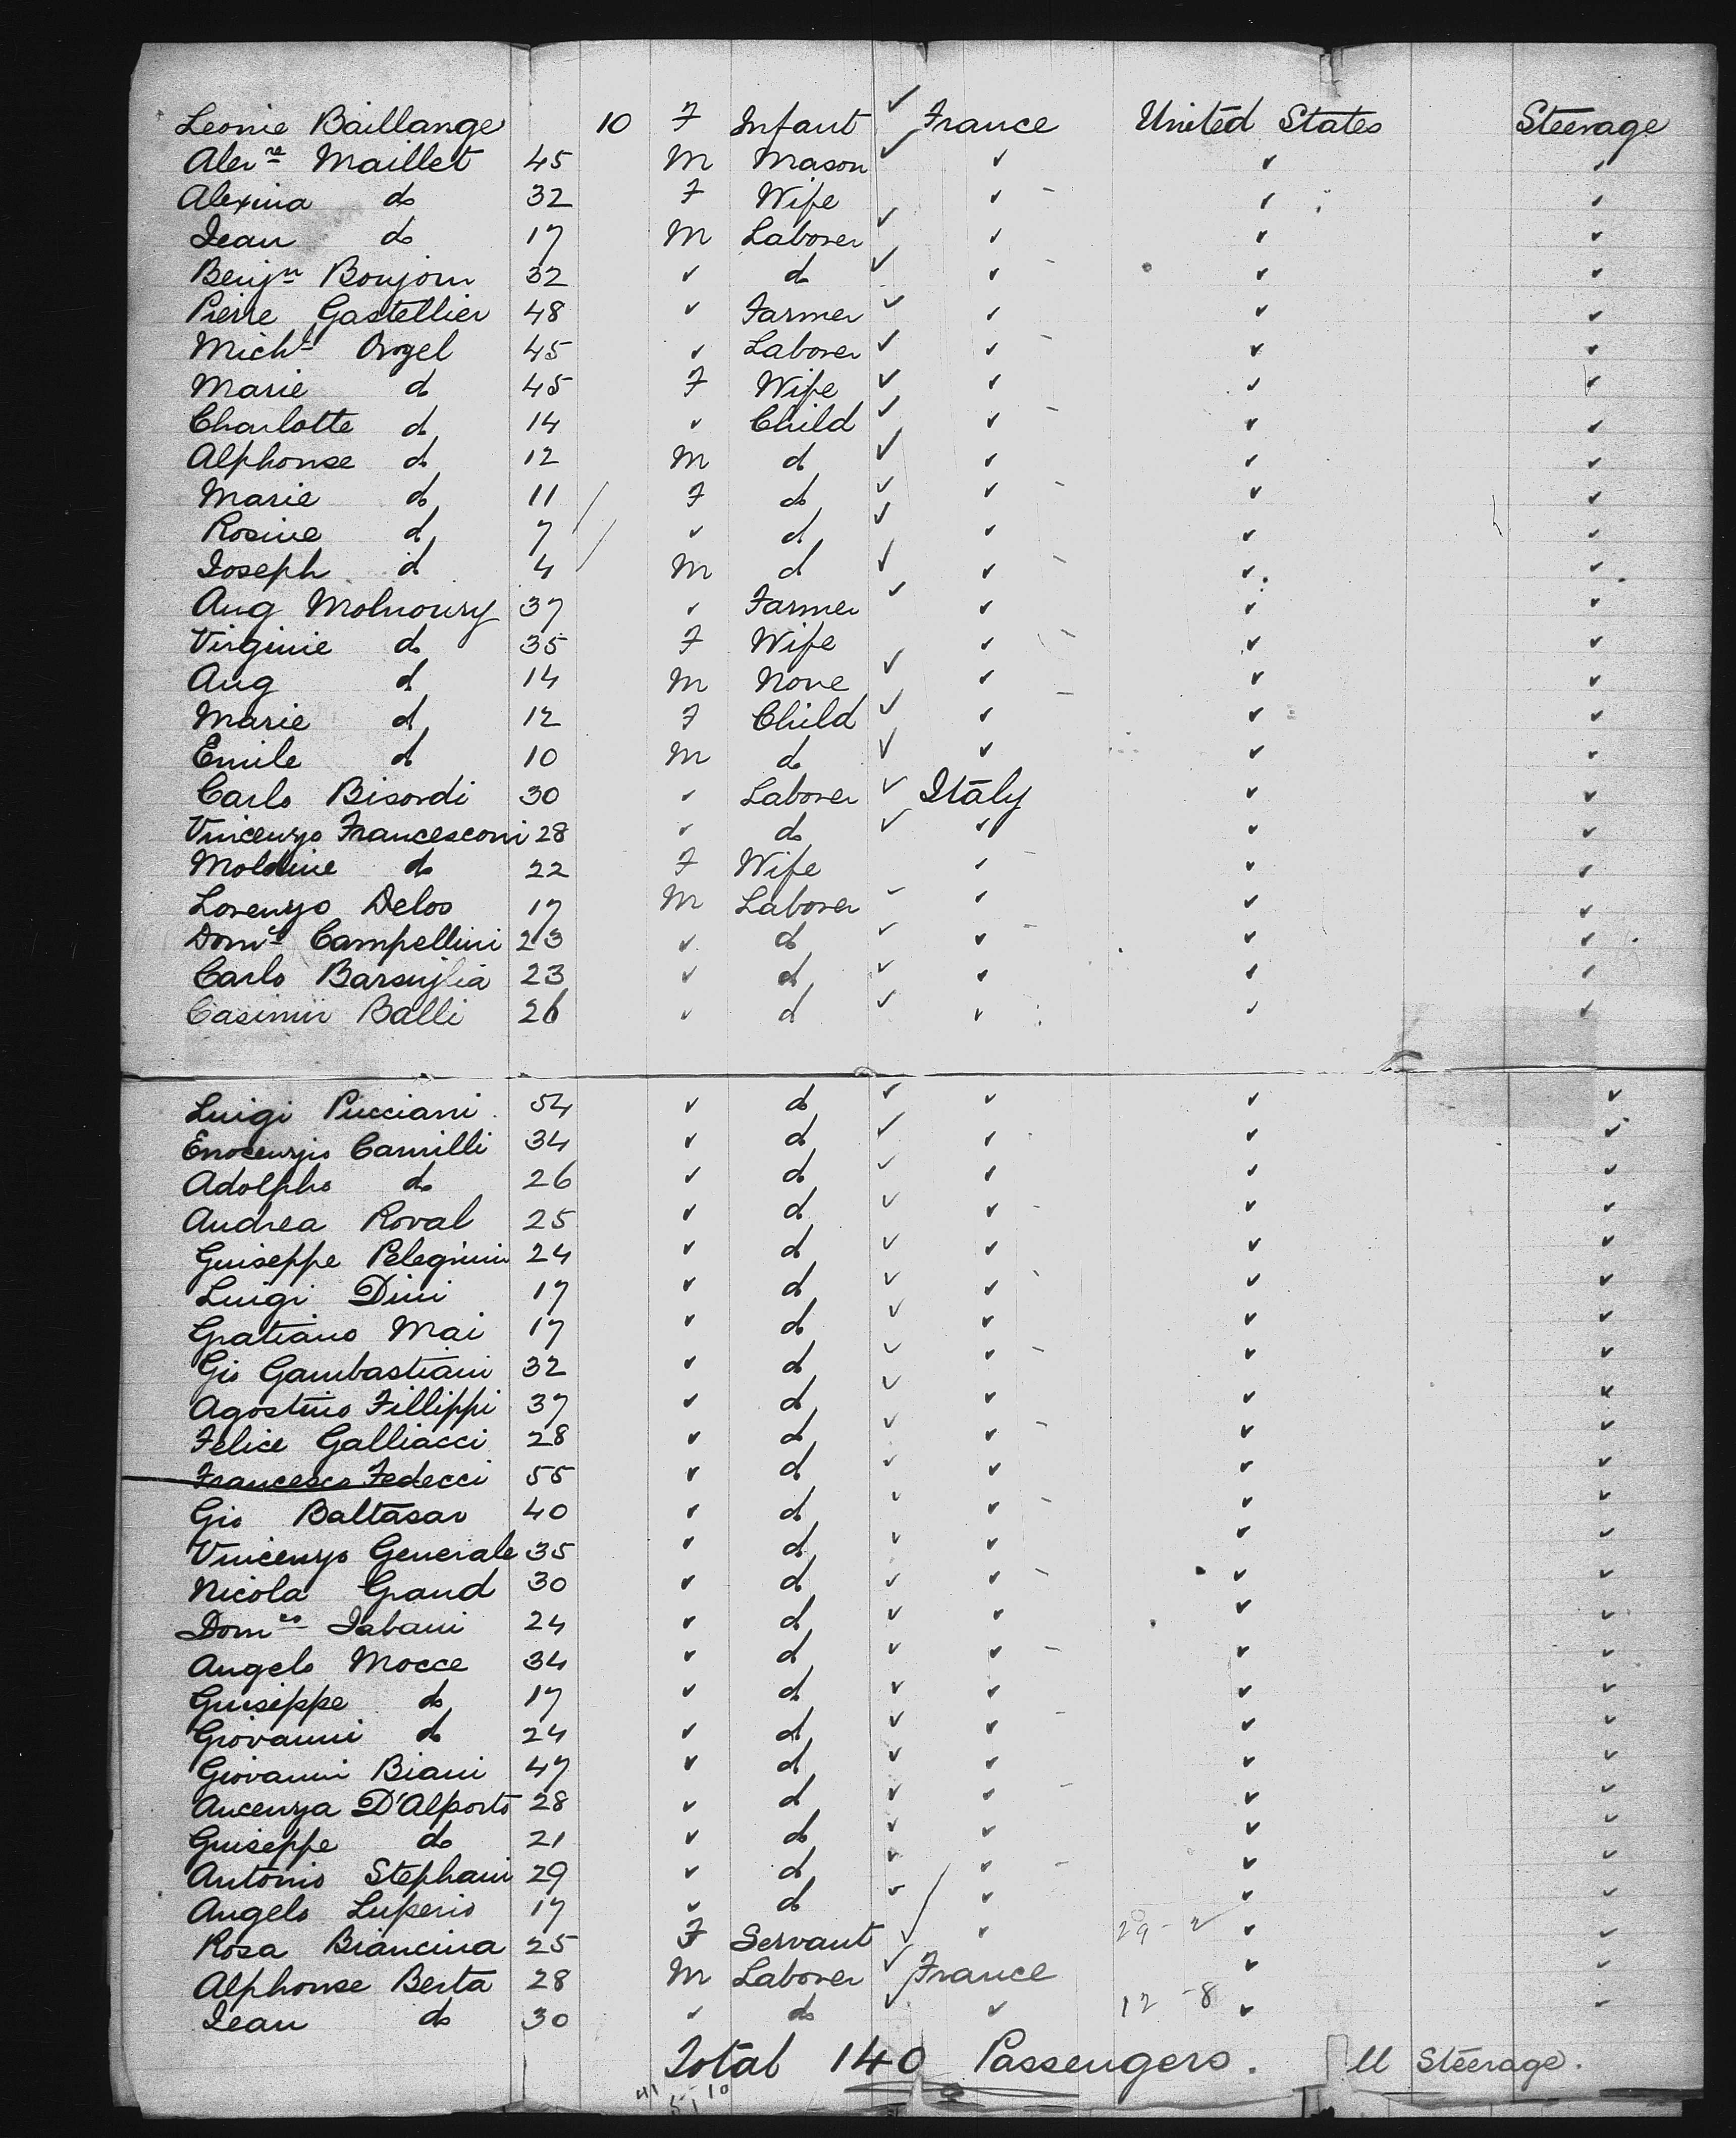 Leonie Baillange 10 F Infant ✓ France United States Steerage
Alexre Maillet 45 M Mason ✓ ✓ ✓ ✓
Alexina do 32 F Wife ✓ ✓ ✓
Jean do 17 M Laborer ✓ ✓ ✓ ✓
Benjn Boujon 32 ✓ do ✓ ✓ ✓ ✓
Pierre Gastellier 48 ✓ Farmer ✓ ✓ ✓ ✓
Michl Orgel 45 ✓ Laborer ✓ ✓ ✓ ✓
Marie do 45 F Wife ✓ ✓ ✓ ✓
Charlotte do 14 ✓ Child ✓ ✓ ✓ ✓
Alphonse do 12 M do ✓ ✓ ✓ ✓
Marie do 11 F do ✓ ✓ ✓ ✓
Rosine do 7 ✓ do ✓ ✓ ✓ ✓
Joseph do 4 M do ✓ ✓ ✓ ✓
Aug Molnoury 37 ✓ Farmer ✓ ✓ ✓ ✓
Virginie do 35 F Wife ✓ ✓ ✓
Aug do 14 M None ✓ ✓ ✓ ✓
Marie do 12 F Child ✓ ✓ ✓ ✓
Emile do 10 M do ✓ ✓ ✓ ✓
Carlo Bisordi 30 ✓ Laborer ✓ Italy ✓ ✓
Vincenzo Francesconi 28 ✓ do ✓ ✓ ✓ ✓
Moldine do 22 F Wife ✓ ✓ ✓
Lorenzo Delos 17 M Laborer ✓ ✓ ✓ ✓
Domco Campellini 23 ✓ do ✓ ✓ ✓ ✓
Carlo Barsuglia 23 ✓ do ✓ ✓ ✓ ✓
Casimir Balli 26 ✓ do ✓ ✓ ✓ ✓
Luigi Pucciani 54 ✓ do ✓ ✓ ✓ ✓
Enocenzio Camilli 34 ✓ do ✓ ✓ ✓ ✓
Adolpho do 26 ✓ do ✓ ✓ ✓ ✓
Andrea Roval 25 ✓ do ✓ ✓ ✓ ✓
Guiseppe Pelegrini 24 ✓ do ✓ ✓ ✓ ✓
Luigi Dini 17 ✓ do ✓ ✓ ✓ ✓
Gratiano Mai 17 ✓ do ✓ ✓ ✓ ✓
Gio Gambastiani 32 ✓ do ✓ ✓ ✓ ✓
Agostino Fillippi 37 ✓ do ✓ ✓ ✓ ✓
Felice Galliacci 28 ✓ do ✓ ✓ ✓ ✓
Francesco Fedecci 55 ✓ do ✓ ✓ ✓ ✓
Gio Baltasar 40 ✓ do ✓ ✓ ✓ ✓
Vincenzo Generale 35 ✓ do ✓ ✓ ✓ ✓
Nicola Grand 30 ✓ do ✓ ✓ ✓ ✓
Domco Jabani 24 ✓ do ✓ ✓ ✓ ✓
Angelo Mocce 34 ✓ do ✓ ✓ ✓ ✓
Guiseppe do 17 ✓ do ✓ ✓ ✓ ✓
Giovanni do 24 ✓ do ✓ ✓ ✓ ✓
Giovanni Biani 47 ✓ do ✓ ✓ ✓ ✓
Ancenza D'Alporto 28 ✓ do ✓ ✓ ✓ ✓
Guiseppe do 21 ✓ do ✓ ✓ ✓ ✓
Antonio Stephani 29 ✓ do ✓ ✓ ✓ ✓
Angelo Luperio 17 ✓ do ✓ ✓ ✓ ✓
Rosa Biancina 25 F Servant ✓ ✓ 29-2 ✓ ✓
Alphonse Berta 28 M Laborer ✓ France ✓ ✓
Jean do 30 ✓ do ✓ ✓ 12-8 ✓ ✓
Total 140 Passengers. All Steerage.